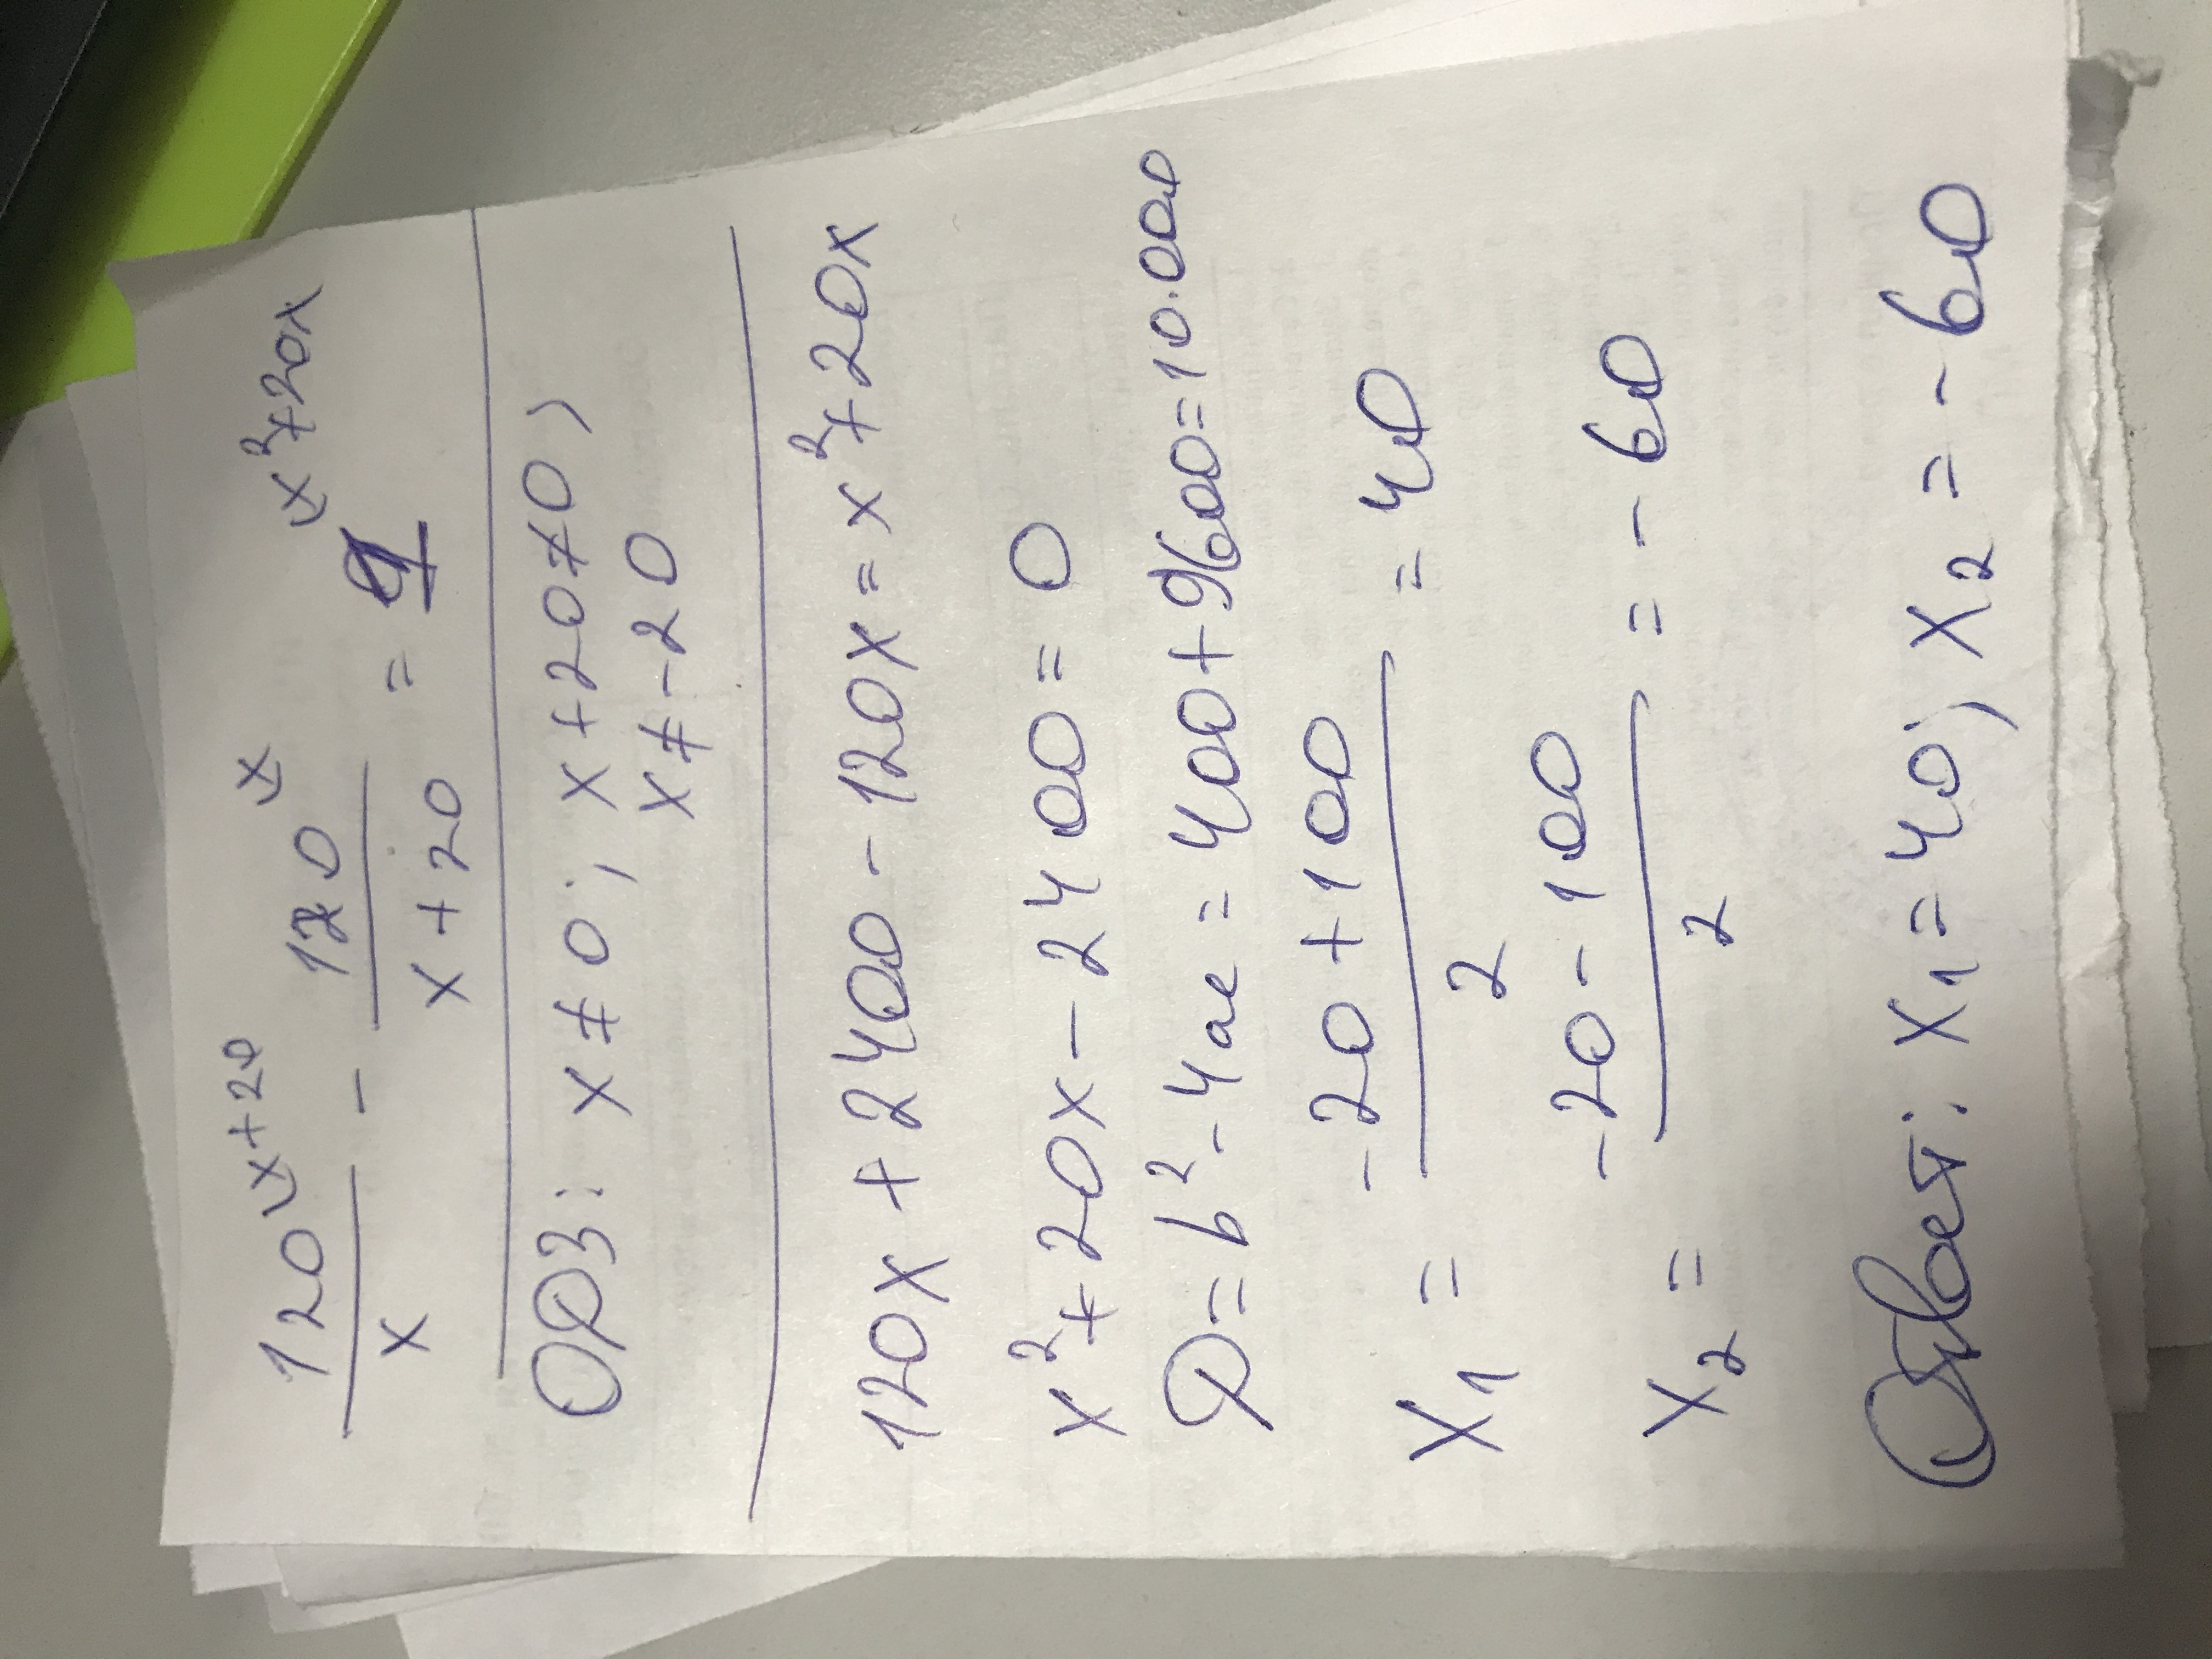 120 \x+20 / x - 120 \x / x+20 = 1 \x²+20x
ОДЗ: x≠0; x+20≠0;
x≠-20
120x+2400-120x=x²+20x
x²+20x-2400=0
D=b²-4ac=400+9600=10.000
x₁ = -20+100 / 2 = 40
x₂ = -20-100 / 2 = -60
Ответ: x₁=40; x₂=-60